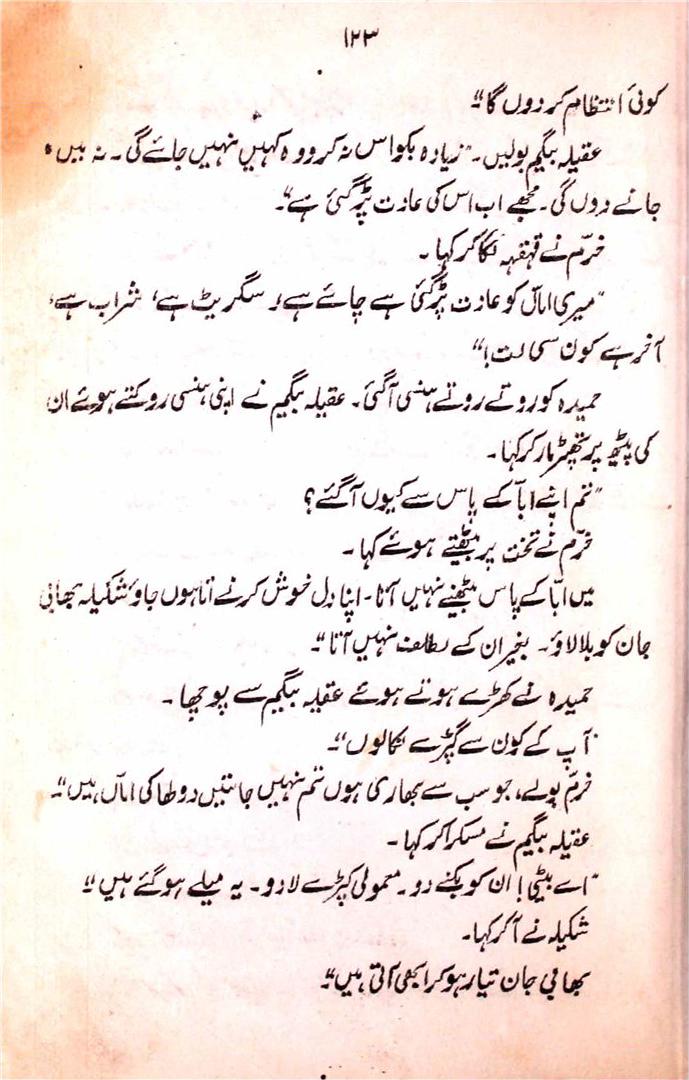 ۱۲۳
کوئی انتظام کر دوں گا"۔
عقیلہ بیگم بولیں۔ "زیادہ بکواس نہ کرو وہ کہیں نہیں جائے گی۔ نہ میں
جانے دوں گی۔ مجھے اب اس کی عادت پڑ گئی ہے"۔
خرّم نے قہقہہ لگا کر کہا۔
"میری اماں کو عادت پڑ گئی ہے چائے ہے، سگریٹ ہے، شراب ہے،
آخر ہے کون سی لت!"
حمیدہ کو روتے روتے ہنسی آ گئی۔ عقیلہ بیگم نے اپنی ہنسی روکتے ہوئے ان
کی پیٹھ پر تھپڑ مار کر کہا۔
"تم اپنے ابّا کے پاس سے کیوں آ گئے؟
خرّم نے تخت پر بیٹھتے ہوئے کہا۔
میں ابّا کے پاس بیٹھنے نہیں آتا۔ اپنا دل خوش کرنے آتا ہوں جاؤ شکیلہ بھابی
جان کو بلا لاؤ۔ بغیر ان کے لطف نہیں آتا"۔
حمیدہ نے کھڑے ہوتے ہوئے عقیلہ بیگم سے پوچھا۔
"آپ کے کون سے کپڑے نکالوں"۔
خرّم بولے، جو سب سے بھاری ہوں تم نہیں جانتیں دولھا کی اماں ہیں"۔
عقیلہ بیگم نے مسکرا کر کہا۔
"اے بیٹی! ان کو بکنے دو۔ معمولی کپڑے لا دو۔ یہ میلے ہو گئے ہیں"
شکیلہ نے آ کر کہا۔
بھابی جان تیار ہو کر ابھی آتی ہیں"۔